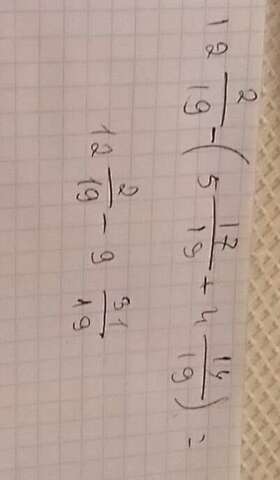 12 2/19 - ( 5 17/19 + 4 14/19 ) =
12 2/19 - 9 31/19